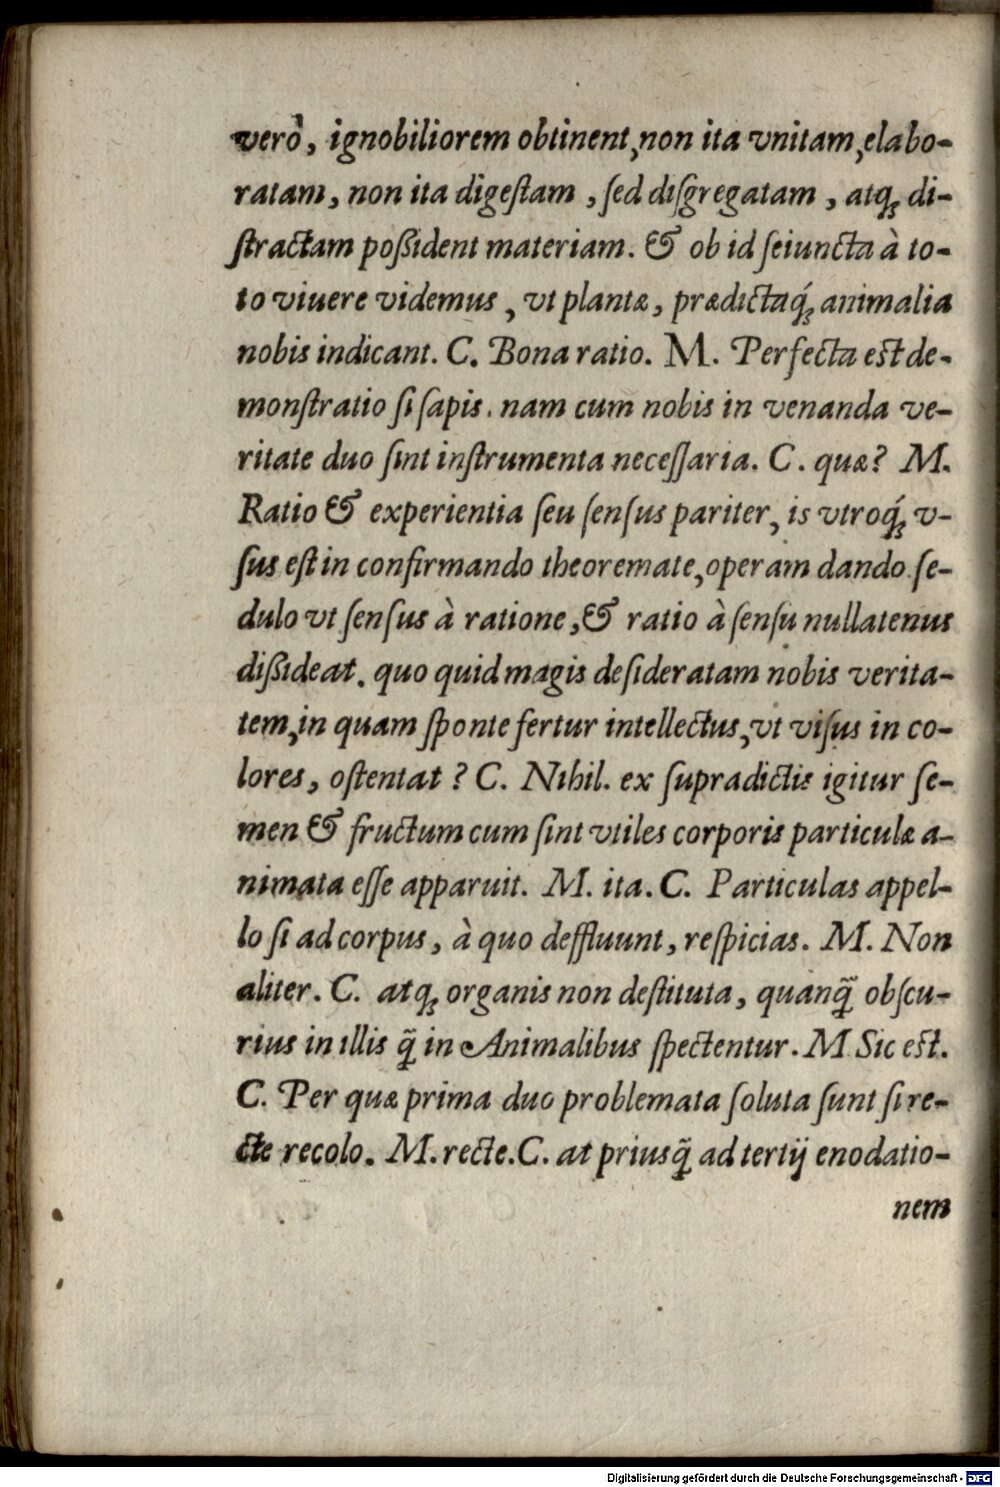 verò, ignobiliorem obtinent, non ita vnitam, elabo-
ratam, non ita digeſtam, ſed diſgregatam, atq; di-
ſtractam poßident materiam. & ob id ſeiuncta à to-
to viuere videmus, vt plantæ, prædictaq́; animalia
nobis indicant. C. Bona ratio. M. Perfecta est de-
monſtratio ſi ſapis. nam cum nobis in venanda ve-
ritate duo ſint inſtrumenta neceſſaria. C. quæ? M.
Ratio & experientia ſeu ſenſus pariter, is vtroq́; v-
ſus eſt in confirmando theoremate, operam dando ſe-
dulo vt ſenſus à ratione, & ratio à ſenſu nullatenus
dißideat. quo quid magis deſideratam nobis verita-
tem, in quam ſponte fertur intellectus, vt viſus in co-
lores, oſtentat? C. Nihil. ex ſupradictis igitur ſe-
men & fructum cum ſint vtiles corporis particulæ a-
nimata eſſe apparuit. M. ita. C. Particulas appel-
lo ſi ad corpus, à quo deffluunt, reſpicias. M. Non
aliter. C. atq; organis non deſtituta, quanq̃ obſcu-
rius in illis q̃ in Animalibus ſpectentur. M Sic est.
C. Per quæ prima duo problemata ſoluta ſunt ſi re-
cte recolo. M. recte. C. at priusq̃ ad tertij enodatio-
nem
Digitalisierung gefördert durch die Deutsche Forschungsgemeinschaft - DFG